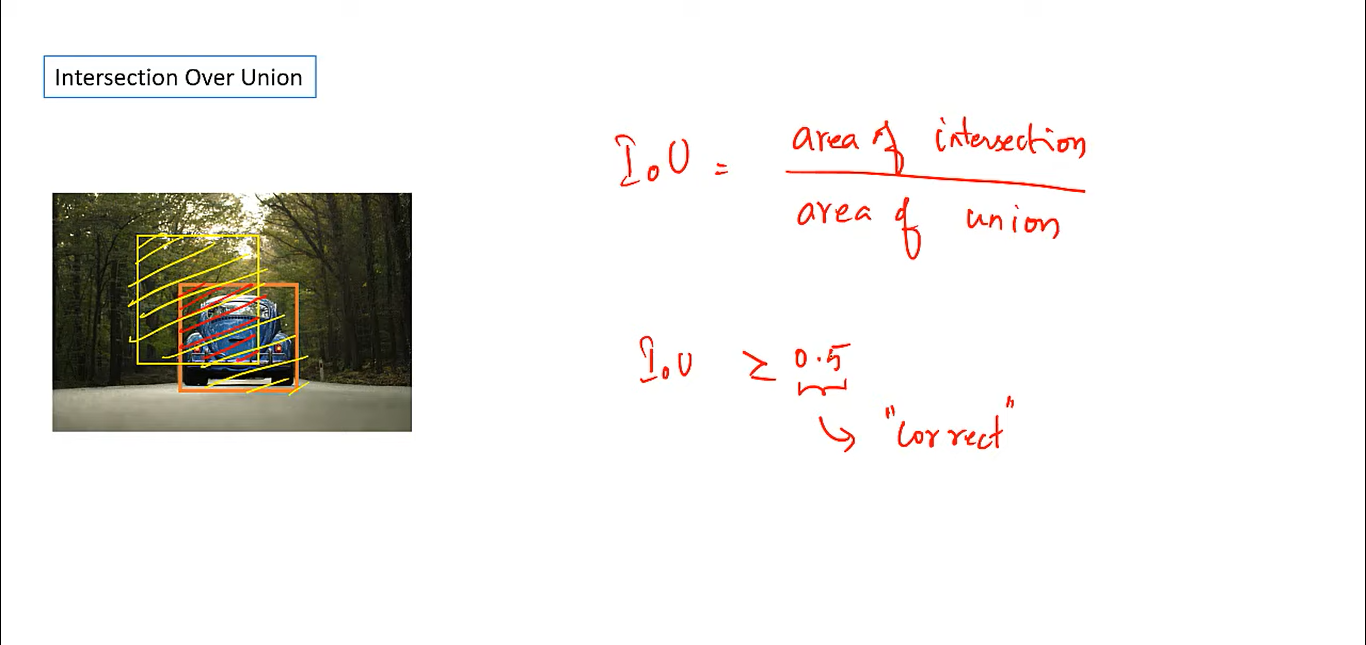 Intersection Over Union
IoU = area of intersection
area of union
IoU ≥ 0.5
"correct"